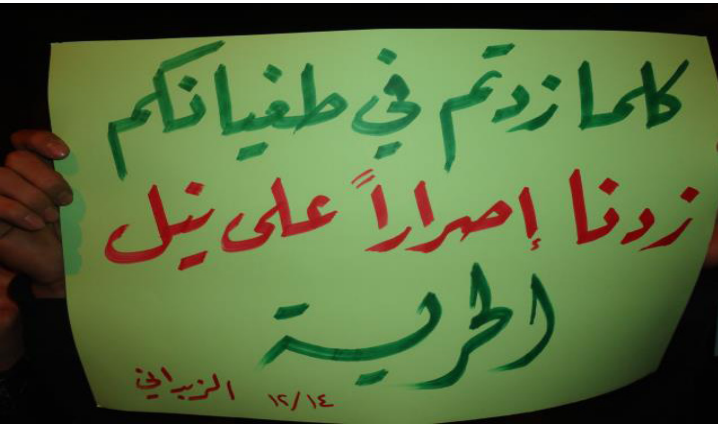 كلما زدتم في طغيانكم
زدنا إصراراً على نيل
الحرية
الزبداني ١٢/١٤